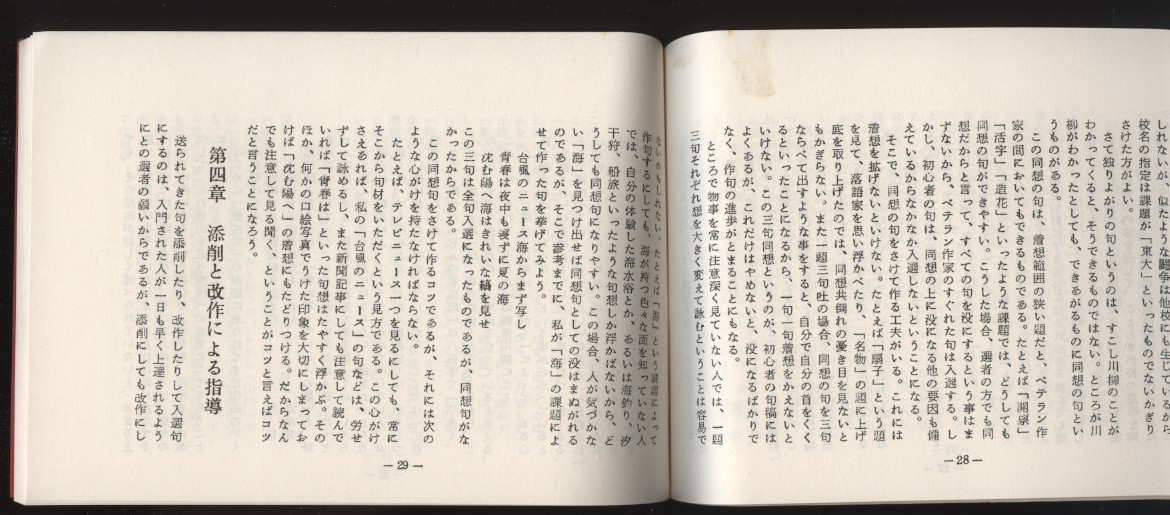 しれないが、似たような闘争は他校にも生じているから
校名の指定は課題が「東大」といったものでないかぎり
さけた方がよい。
さて独りよがりの句というのは、すこし川柳のことが
わかってくると、そうできるものではない。ところが川
柳がわかったとしても、できあがるものに同想の句とい
うものがある。
この同想の句は、着想範囲の狭い題だと、ベテラン作
家の間においてもできるものである。たとえば「開票」
「活字」「造花」といったような課題では、どうしても
同想の句ができやすい。こうした場合、選者の方でも同
想だからと言って、すべての句を没にするという事はま
ずないから、ベテラン作家のすぐれた句は入選する。し
かし、初心者の句は、同想の上に没になる他の要因も備
えているからなかなか入選しないということになる。
そこで、同想の句をさけて作る工夫がいる。これには
着想を拡げないといけない。たとえば「扇子」という題
を見て、落語家を思い浮かべたり、「名物」の題に上げ
底を取り上げたのでは、同想共倒れの憂き目を見ないと
もかぎらない。また一題三句吐の場合、同想の句を三句
ならべて出すような事をすると、自分で自分の首をくく
るといったことになるから、一句一句着想をかえないと
いけない。この三句同想というのが、初心者の句稿には
よくあるが、これだけはやめないと、没になるばかりで
なく、作句の進歩がとまることにもなる。
ところで物事を常に注意深く見ていない人では、一題
三句それぞれ想を大きく変えて詠むということは容易で
—28—
ないかもしれない。たとえば「海」という課題によって
作句するにしても、海が持つ色々な面を知っていない人
では、自分の体験した海水浴とか、あるいは海釣り、汐
干狩、船旅といったような句想しか浮かばないから、ど
うしても同想句になりやすい。この場合、人が気づかな
い「海」を見つけ出せば同想句としての没はまぬがれる
のであるが、そこで参考までに、私が「海」の課題によ
せて作った句を挙げてみよう。
台風のニュース海からまず写し
青春は夜中も寝ずに夏の海
沈む陽へ海はきれいな縞を見せ
この三句は全句入選になったものであるが、同想句がな
かったからである。
この同想句をさけて作るコツであるが、それには次の
ような心がけを持たなければならない。
たとえば、テレビニュース一つを見るにしても、常に
そこから句材をいただくという見方である。この心がけ
さえあれば、私の「台風のニュース」の句などは、労せ
ずして詠めるし、また新聞記事にしても注意して読んで
いれば「青春は」といった句想はたやすく浮かぶ。その
ほか、何かの口絵写真でうけた印象を大切にしまってお
けば「沈む陽へ」の着想にもたどりつける。だからなん
でも注意して見る聞く、ということがコツと言えばコツ
だと言うことになろう。
第四章 添削と改作による指導
送られてきた句を添削したり、改作したりして入選句
にするのは、入門された人が一日も早く上達されるよう
にとの選者の願いからであるが、添削にしても改作にし
—29—